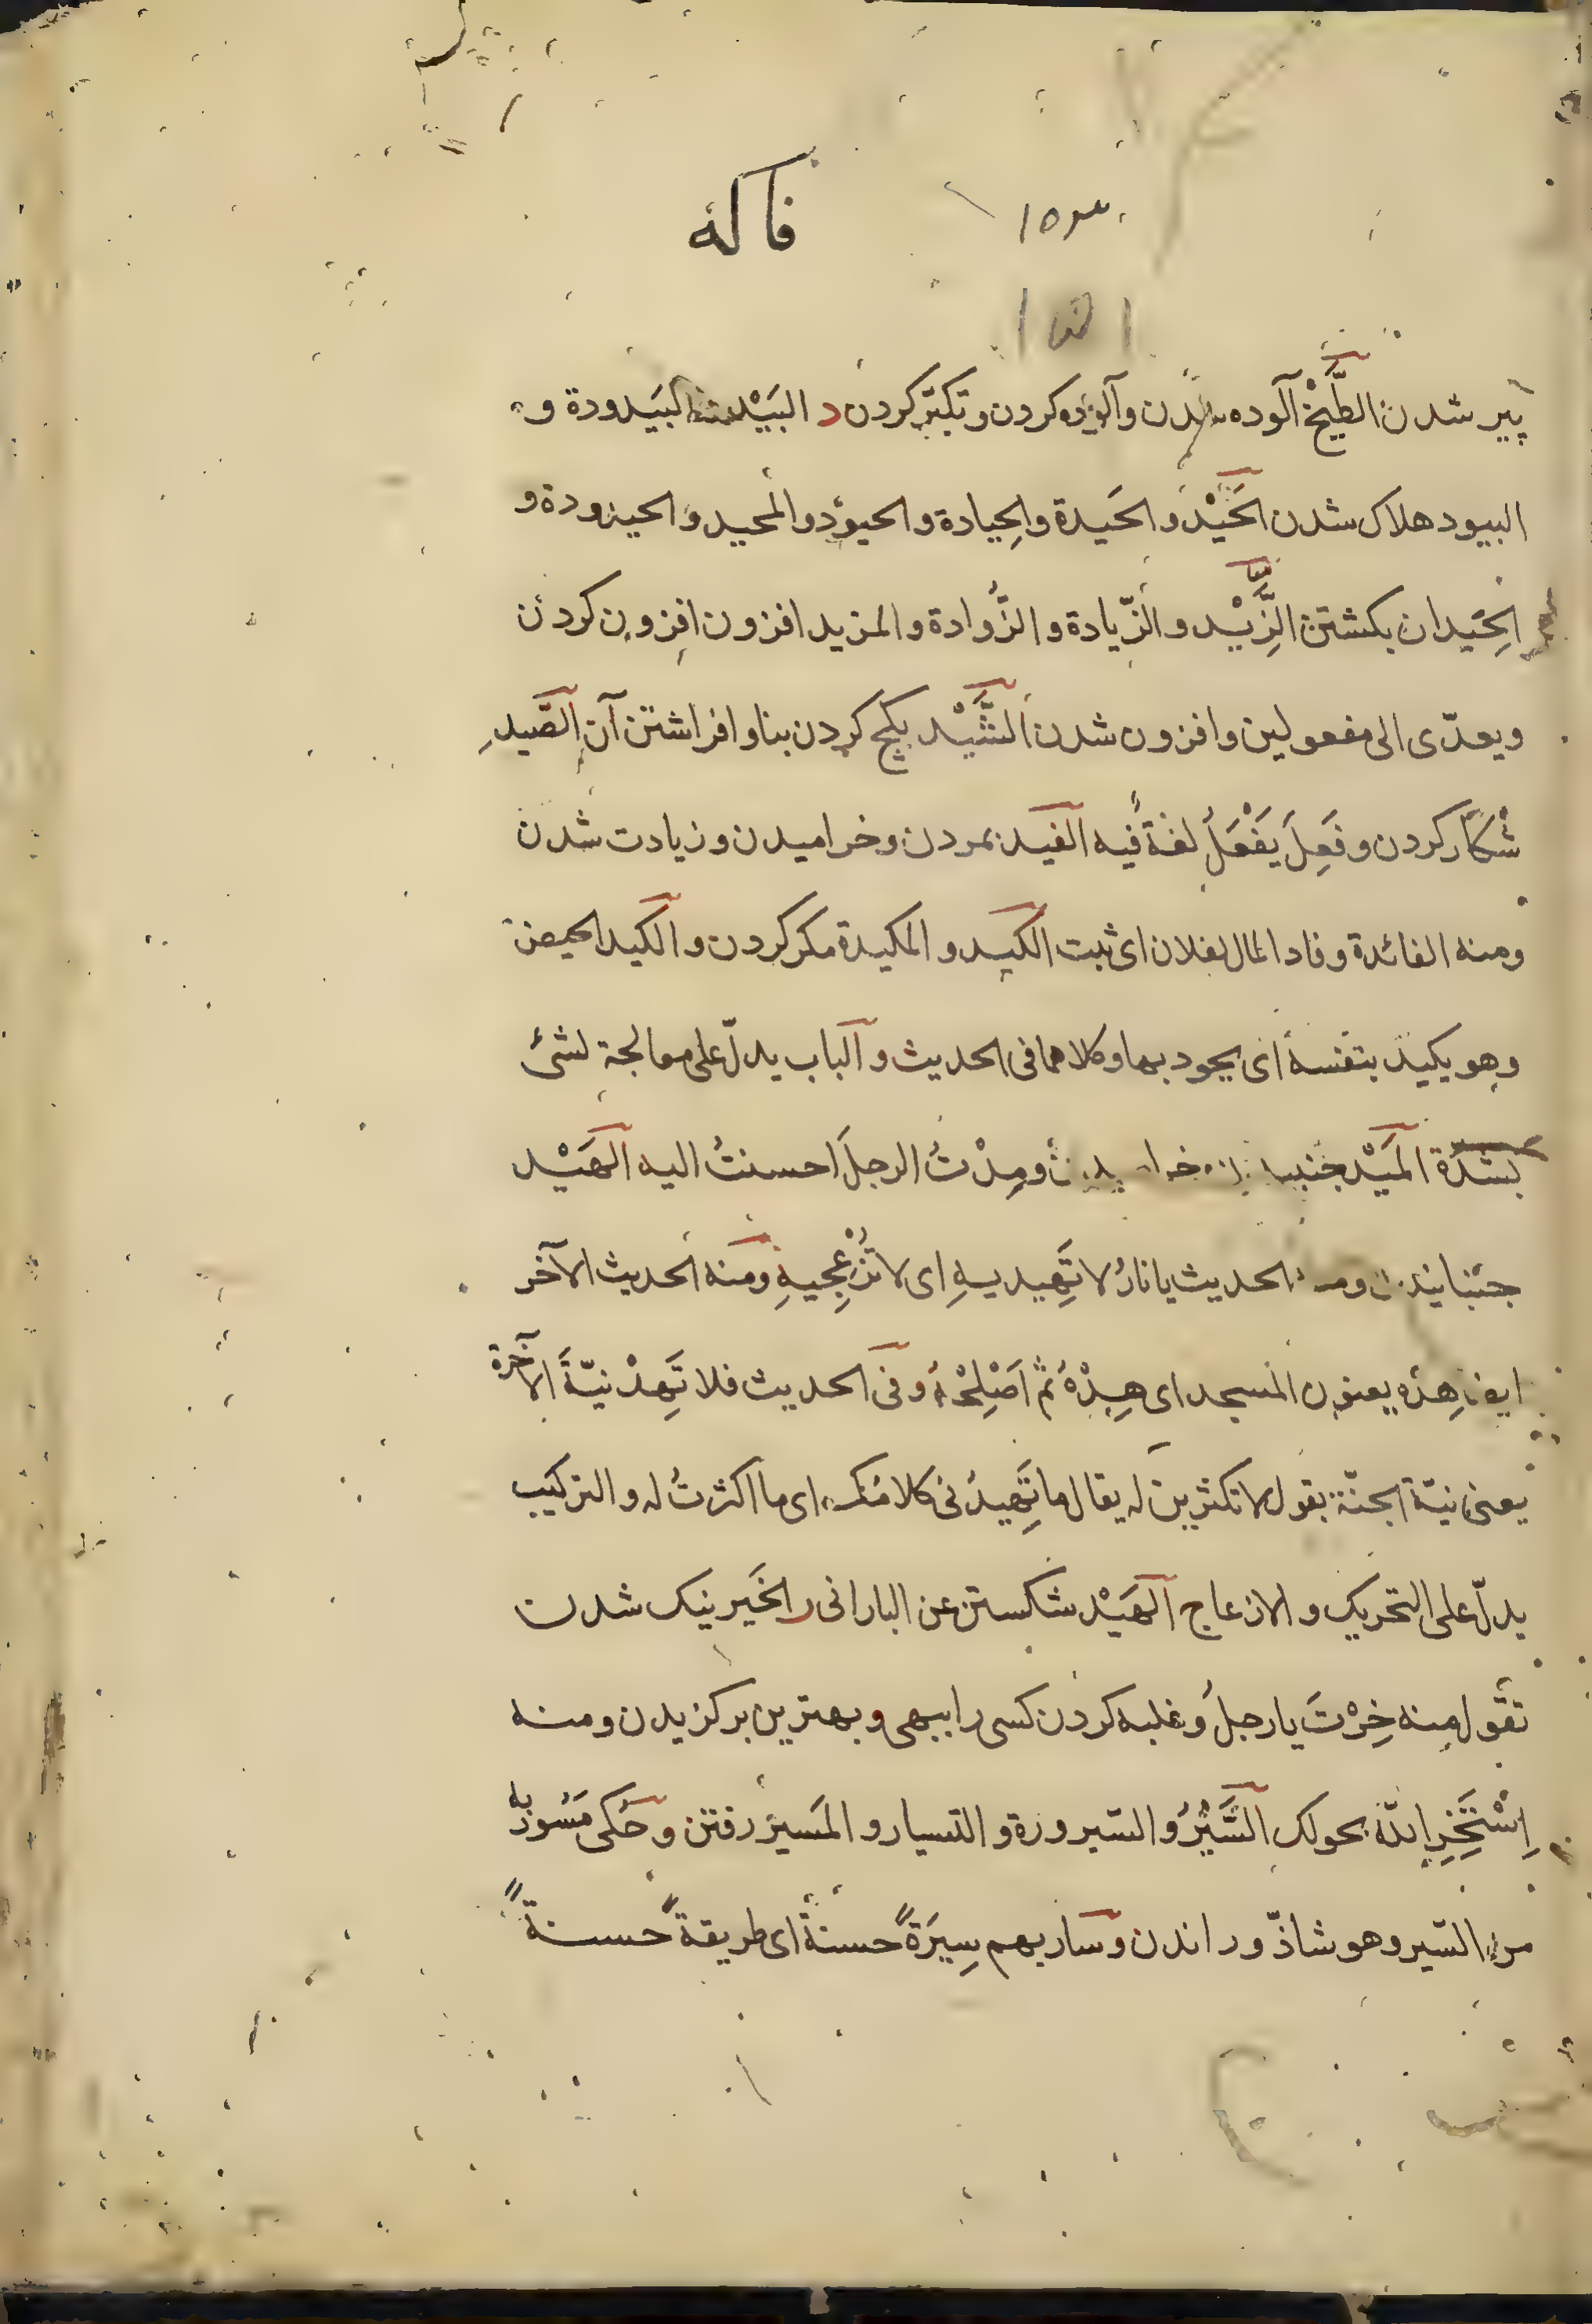 فاكه
پیر شدن الطَّيْخ آلوده شدن وآلوده کردن و تکبّر کردن د البَيْد والبَيدودة و
البیود هلاک شدن الحَيْد و الحَيدة والحِيادة و الحيود والمحيد والحيدودة و
الحَيدان بکشتن الزَّيْد و الزّيادة و الزُّوادة و المزید افزون افزون کردن
ویعدّی الی مفعولین وافزون شدن الشَّيْد بکج کردن بنا وافراشتن آن الصَّيد
شکار کردن وفَعِلَ يَفْعَلُ لغةً فیه الفید بمردن وخرامیدن وزیادت شدن
ومنه الفائدة وفاد المال لفلان ای ثبت الکید و المکیدة مکر کردن و الکید الحیض
وهو یکید بنفسه ای یجود بها وکلاهما فی الحدیث و الباب یدلّ علی معالجة لشئ
بشدّة المَيْد جنبیدن وخرامیدن ومِدْتُ الرجلَ احسنتُ الیه الهَيْد
جنبانیدن ومنه الحدیث یا نارُ لا تَهِيدِيهِ ای لا تُزْعِجِيهِ ومنه الحدیث الآخر
هِدْهُ یعنون المسجد ای هِدْهُ ثمّ اَصْلِحْهُ وفی الحدیث فلا تَهِدْ نیّةَ الآخرة
یعنی نیّة الجنّة یقول لا تکثرین له یقال ما تَهِيدُنی کلامک ای ما اکثرتُ له و الترکیب
یدلّ علی التحریک و الازعاج الهَيْد شکستن عن البارانی ر الخَير نیک شدن
تقول منه خِرْتَ یا رجلُ وغلبه کردن کسی را ببهی و بهترین برکزیدن ومنه
اِسْتَخِرِ اللّه بحولک السَّيْرُ و السّیرورة و التسیار و المَسیر رفتن و حکی مَسُور به
من السّیر وهو شاذّ و راندن و سار بهم سِيرَةً حسنةً ای طریقةً حسنةً